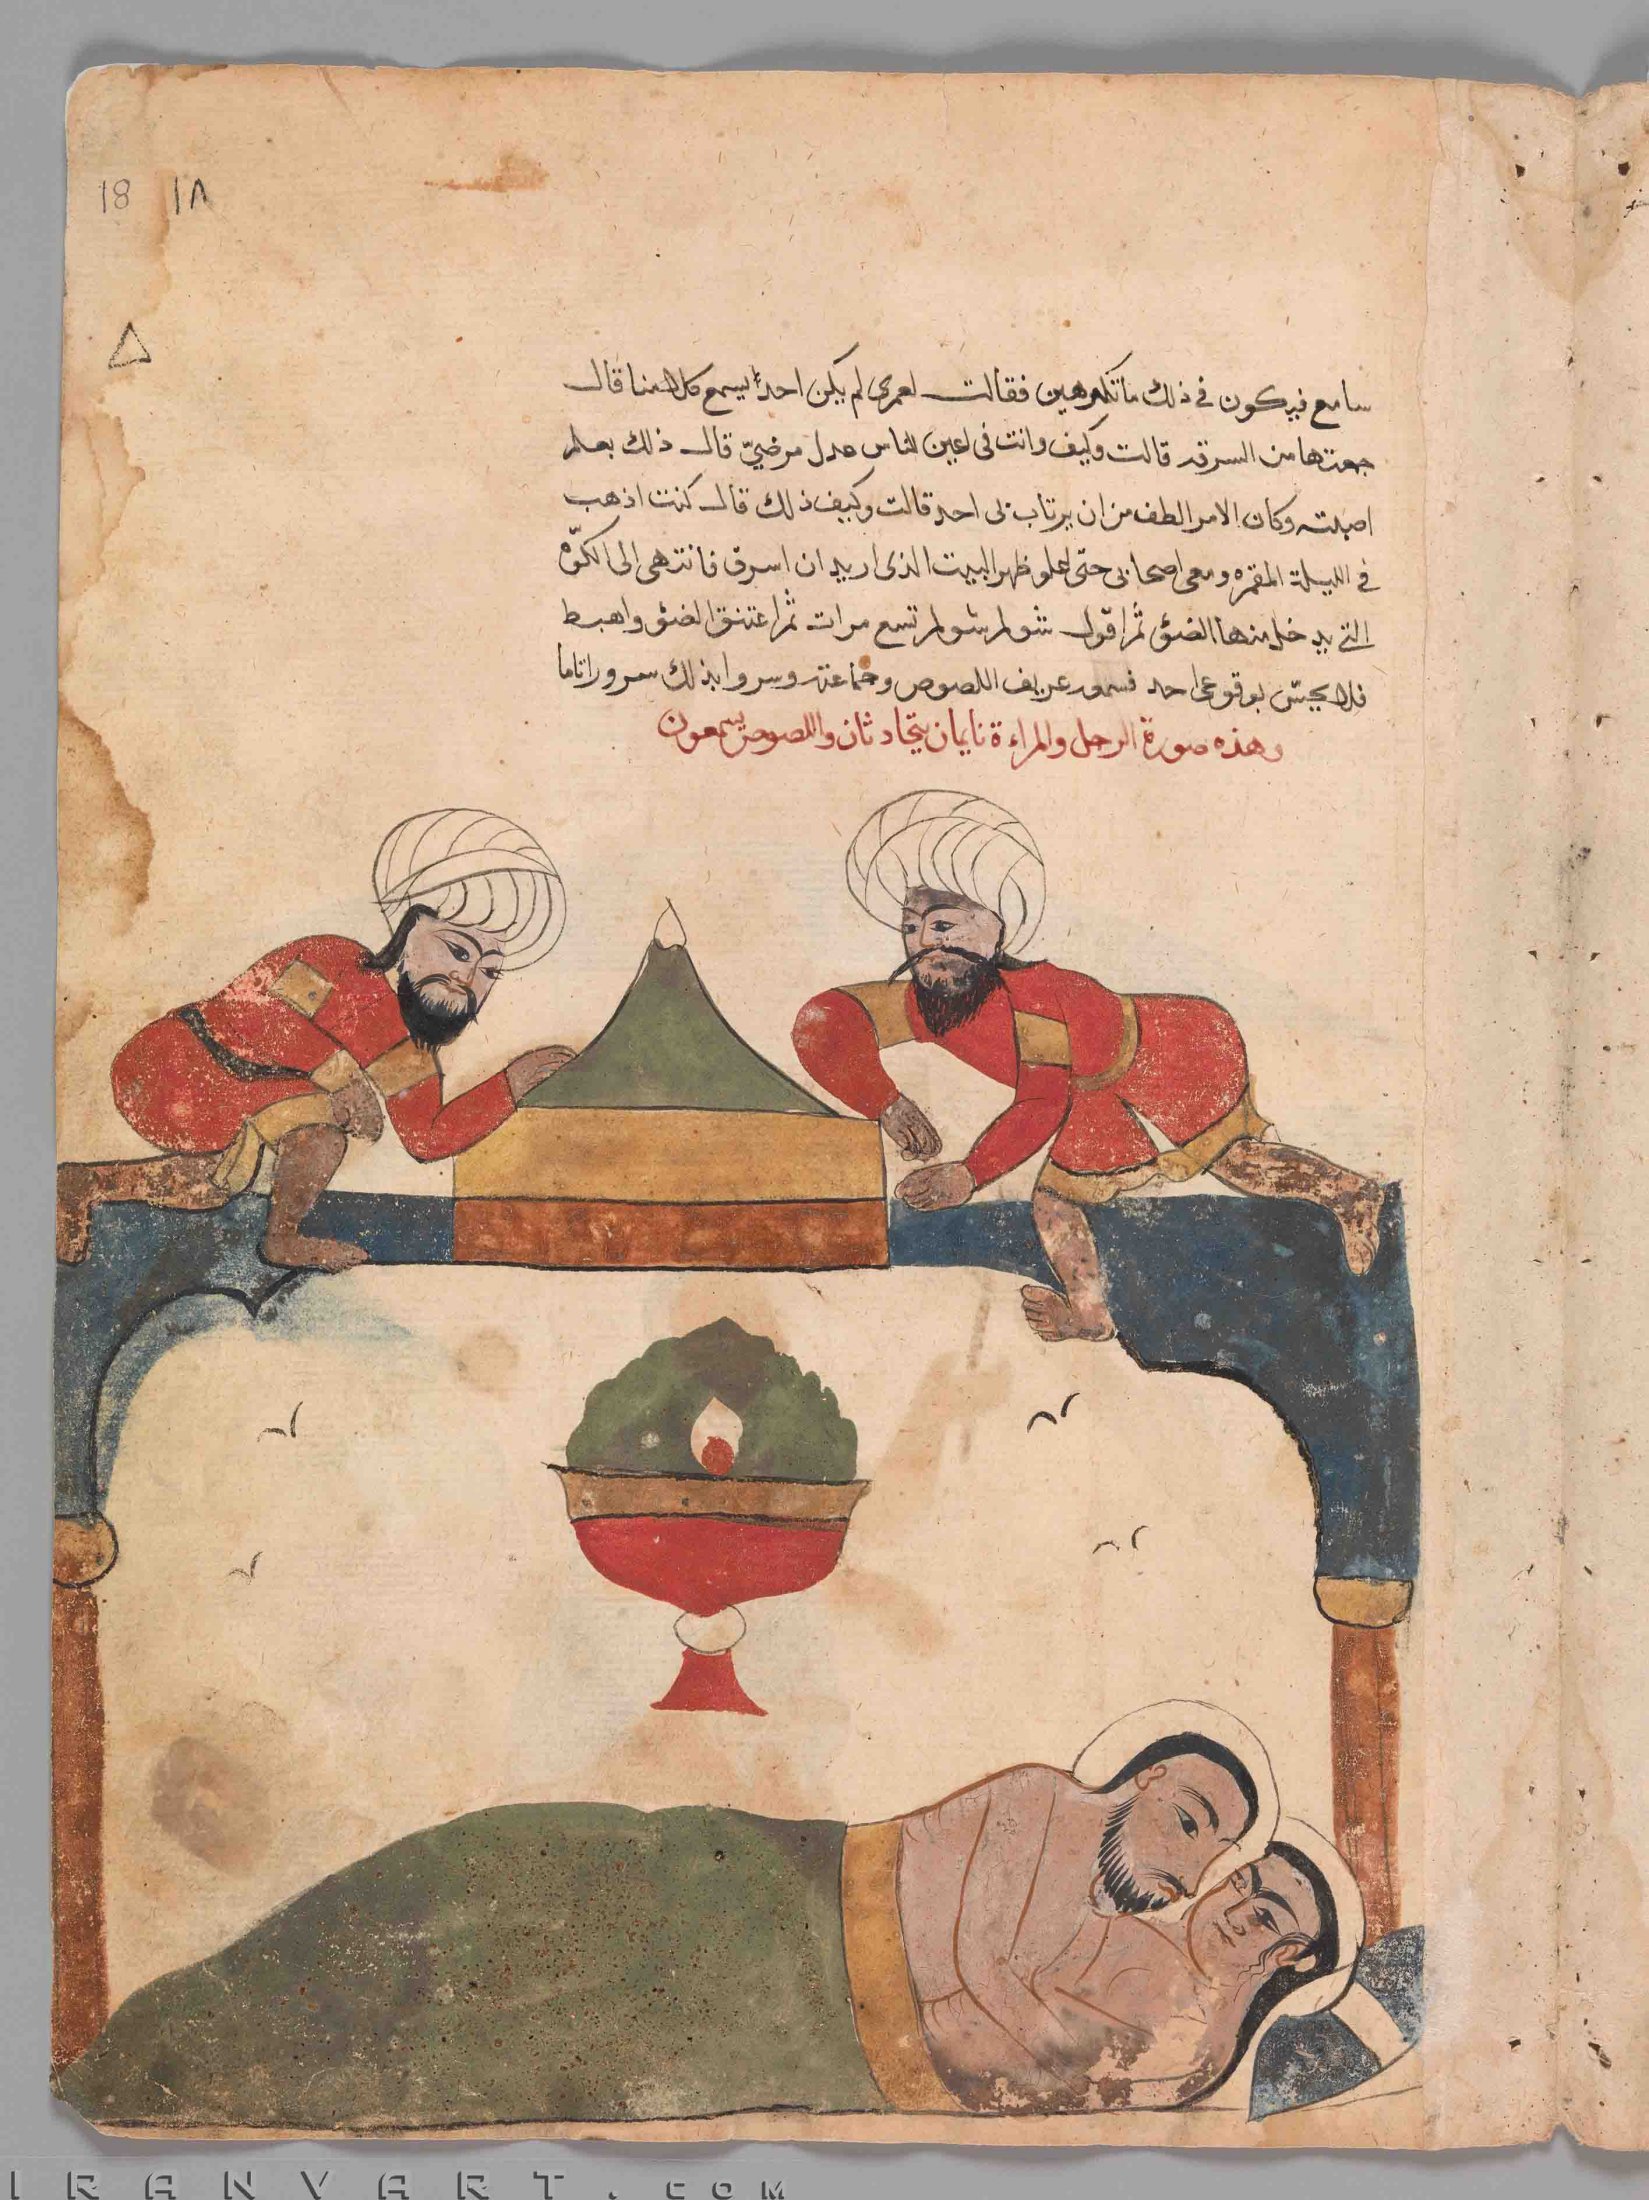 18 ١٨
سامع فيكون في ذلك ما تكرهين فقالت لعمري لم يكن احد يسمع كلامنا قال
جمعتها من السرقه قالت وكيف وانت في اعين الناس عدل مرضيّ قال ذلك بعلم
اصبته وكان الامر الطف من ان يرتاب بي احد قالت وكيف ذلك قال كنت اذهب
في الليلة المقمره ومعي اصحابي حتى اعلو ظهر البيت الذي اريد ان اسرق فانتهي الى الكوّه
التي يدخل منها الضوّ ثم اقول شولم شولم تسع مرات ثم اعتنق الضوّ واهبط
فلا يحسّ بوقوعي احد فسمع عريف اللصوص وجماعته وسروا بذلك سرورا تاما
وهذه صورة الرجل والمراءة نايمان يتحادثان واللصوص يسمعون
IRANVART.COM